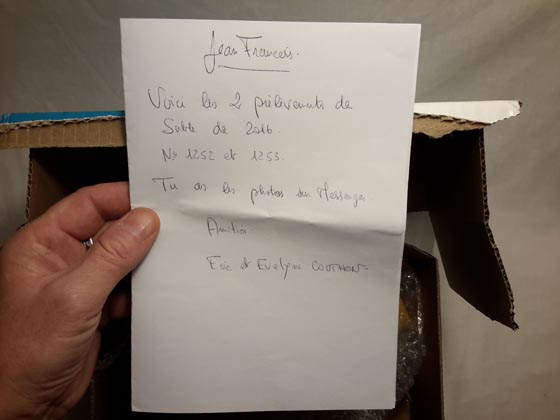 Jean Francois.
Voici les 2 prélèvements de
Sable de 2016.
N° 1252 et 1253.
Tu as les photos sur Messenger
Amitiés
Eric et Evelyne